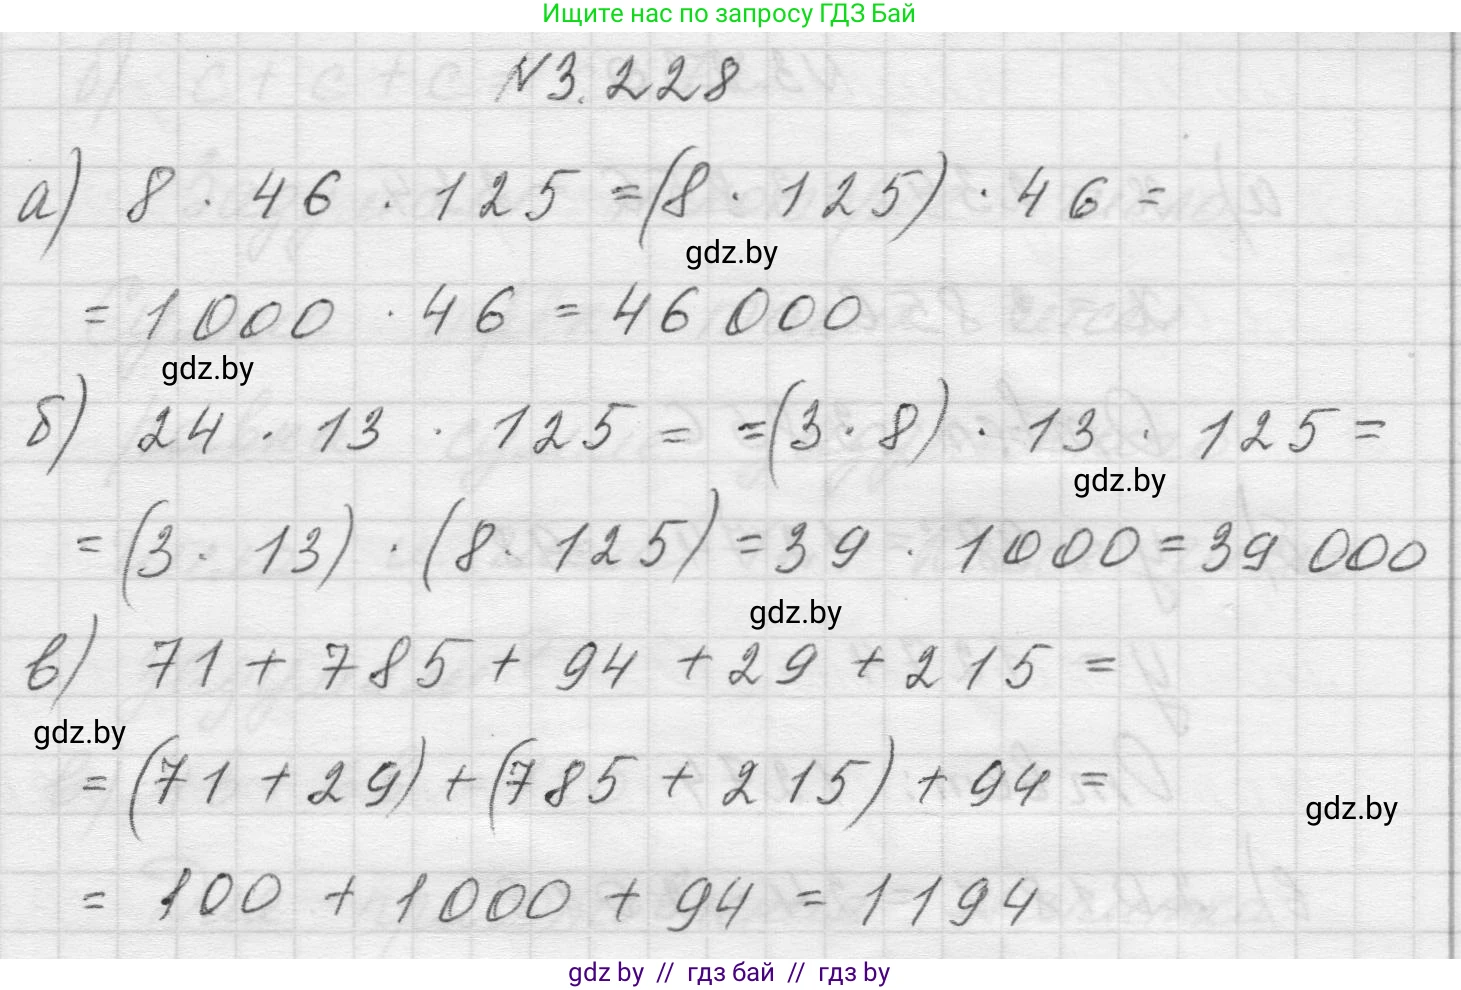 Ищите нас по запросу ГДЗ Бай
№3.228
а) 8 · 46 · 125 = (8 · 125) · 46 =
gdz.by
= 1000 · 46 = 46 000
gdz.by
б) 24 · 13 · 125 = =(3 · 8) · 13 · 125 =
gdz.by
= (3 · 13) · (8 · 125) = 39 · 1000 = 39 000
gdz.by
в) 71 + 785 + 94 + 29 + 215 =
gdz.by
= (71 + 29) + (785 + 215) + 94 =
gdz.by
= 100 + 1000 + 94 = 1194
gdz by // gdz бай // гдз by